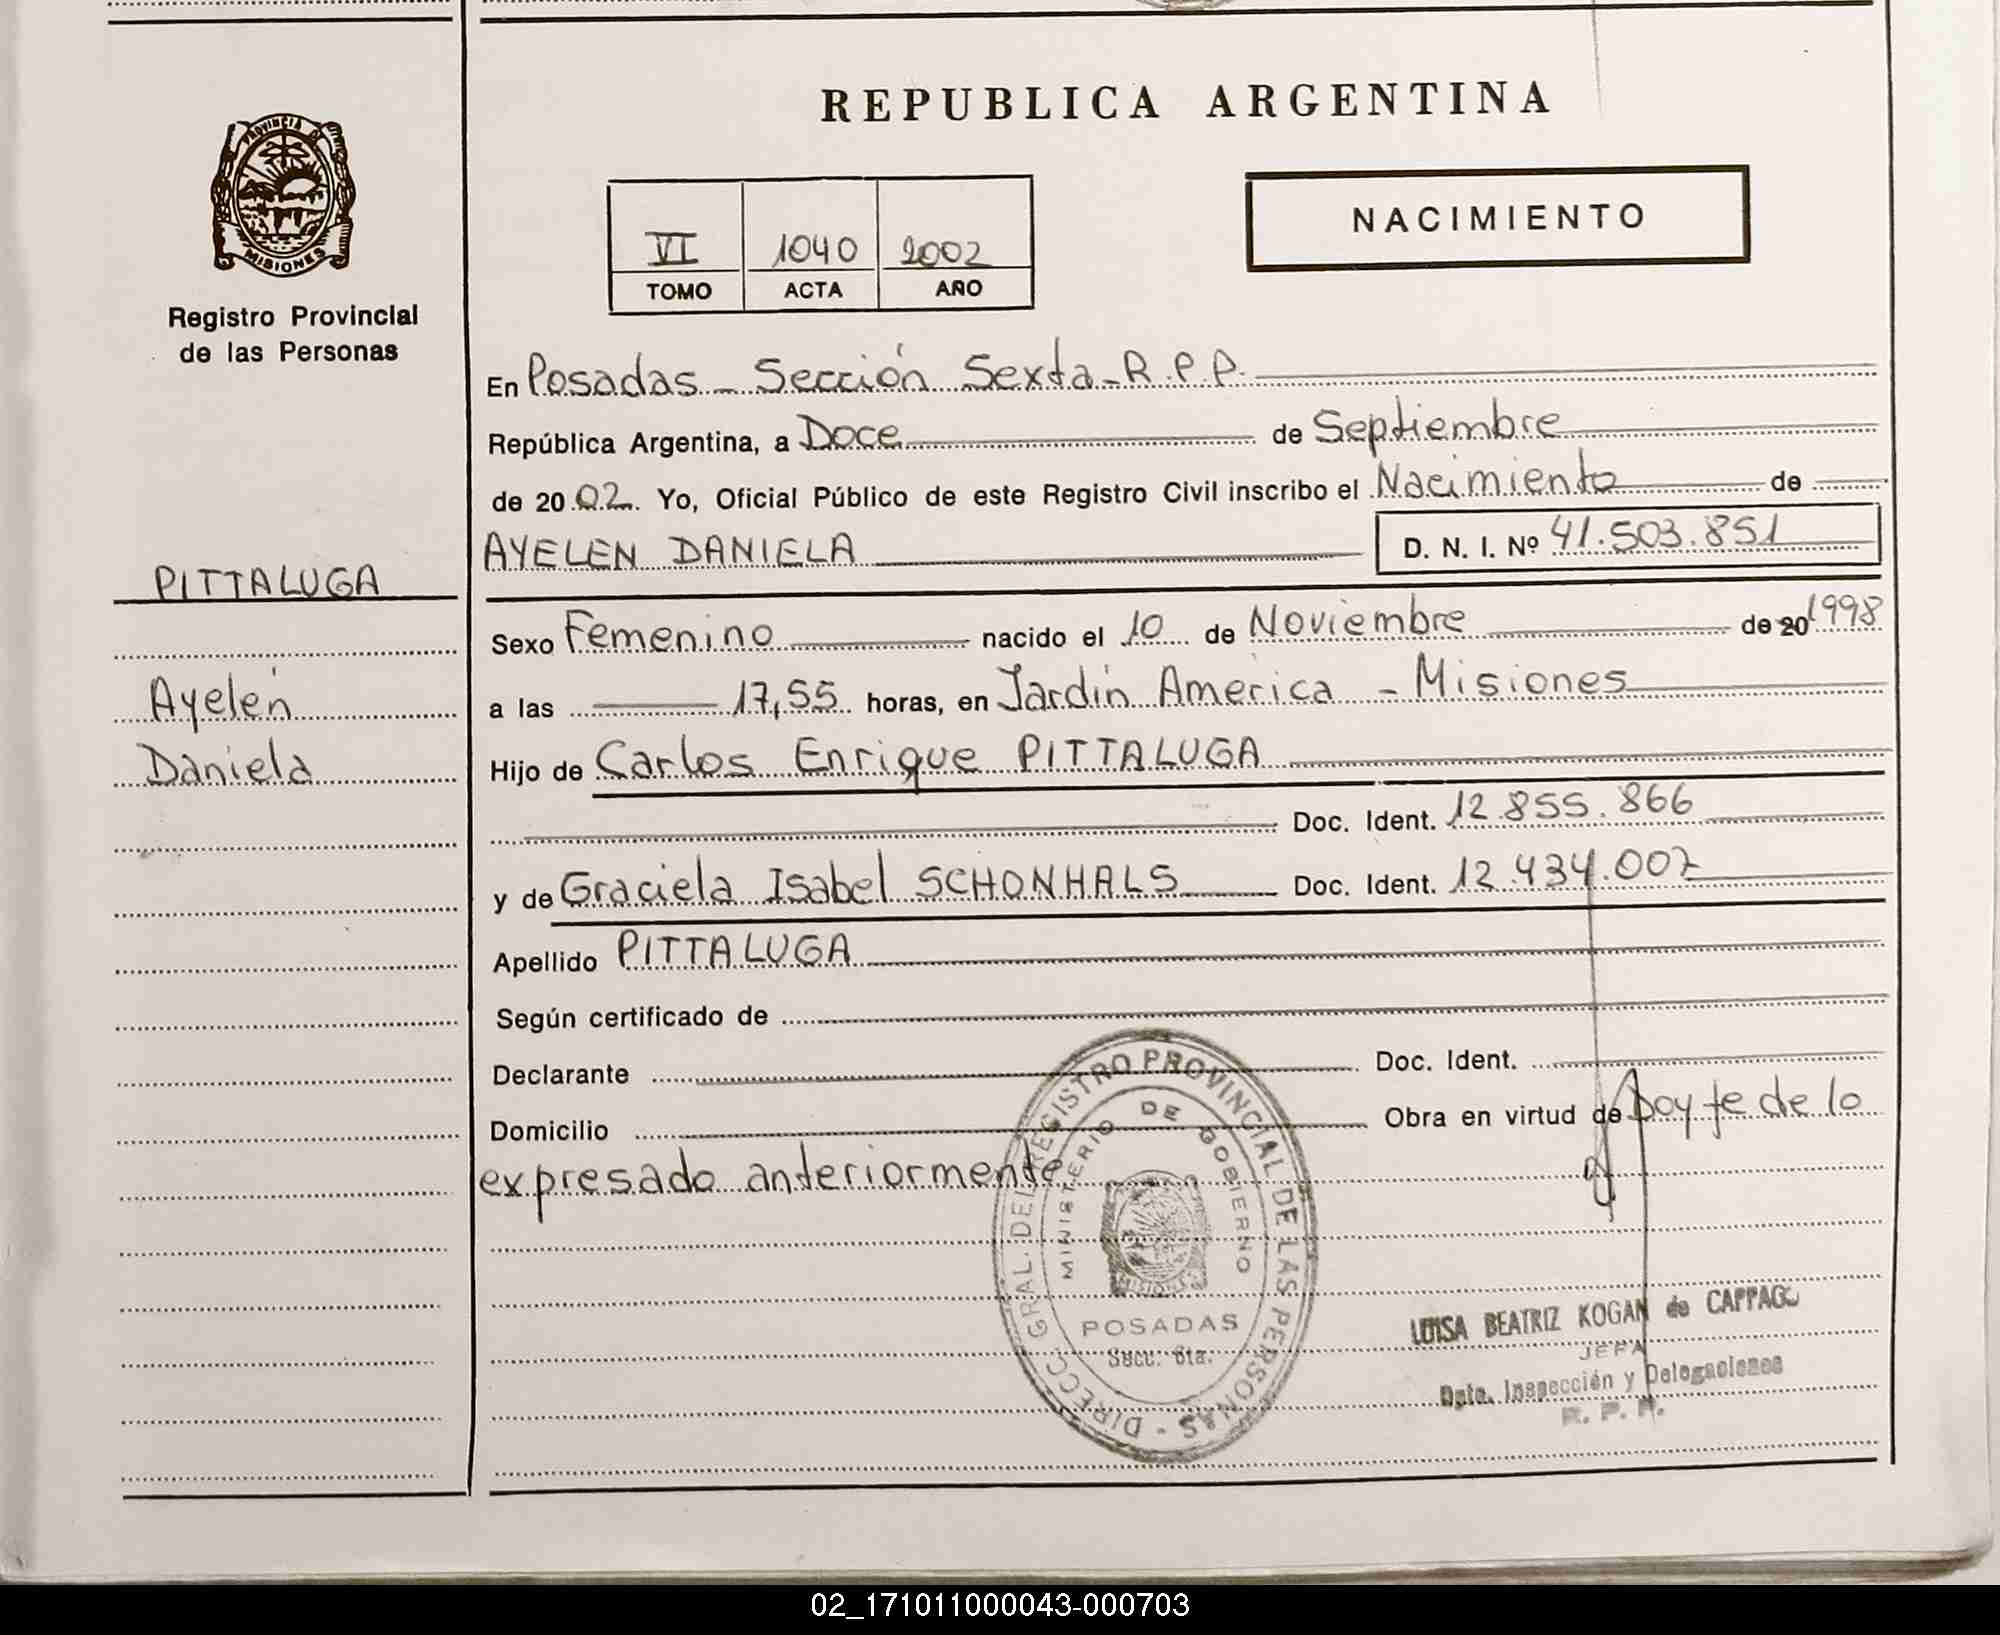 REPUBLICA ARGENTINA
PROVINCIA DE
MISIONES
Registro Provincial
de las Personas
VI 1040 2002
TOMO ACTA AÑO
NACIMIENTO
En Posadas - Sección Sexta - R.P.P.
República Argentina, a Doce de Septiembre
de 2002. Yo, Oficial Público de este Registro Civil inscribo el Nacimiento de
AYELEN DANIELA D. N. I. Nº 41.503.851
PITTALUGA
Ayelén
Daniela
Sexo Femenino nacido el 10 de Noviembre de 20 1998
a las 17,55 horas, en Jardín América - Misiones
Hijo de Carlos Enrique PITTALUGA
Doc. Ident. 12.855.866
y de Graciela Isabel SCHONHALS Doc. Ident. 12.434.007
Apellido PITTALUGA
Según certificado de
Declarante Doc. Ident.
Domicilio Obra en virtud de doy fe de lo
expresado anteriormente
DIRECC. GRAL. DEL REGISTRO PROVINCIAL DE LAS PERSONAS -
MINISTERIO DE GOBIERNO
MISIONES
POSADAS
Secc. 6ta.
LUISA BEATRIZ KOGAN de CAPPAGO
JEFA
Dpto. Inspección y Delegaciones
R. P. P.
02_171011000043-000703